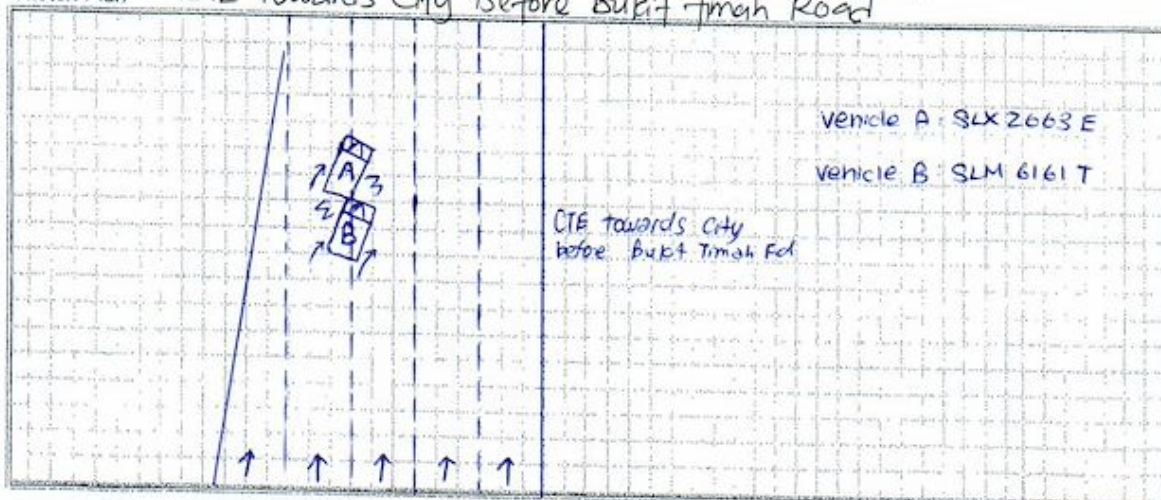 Towards City Before Bukit Timah Road
Vehicle A : SLX 2663 E
Vehicle B : SLM 6161 T
A
B
CTE towards City
before Bukit Timah Rd